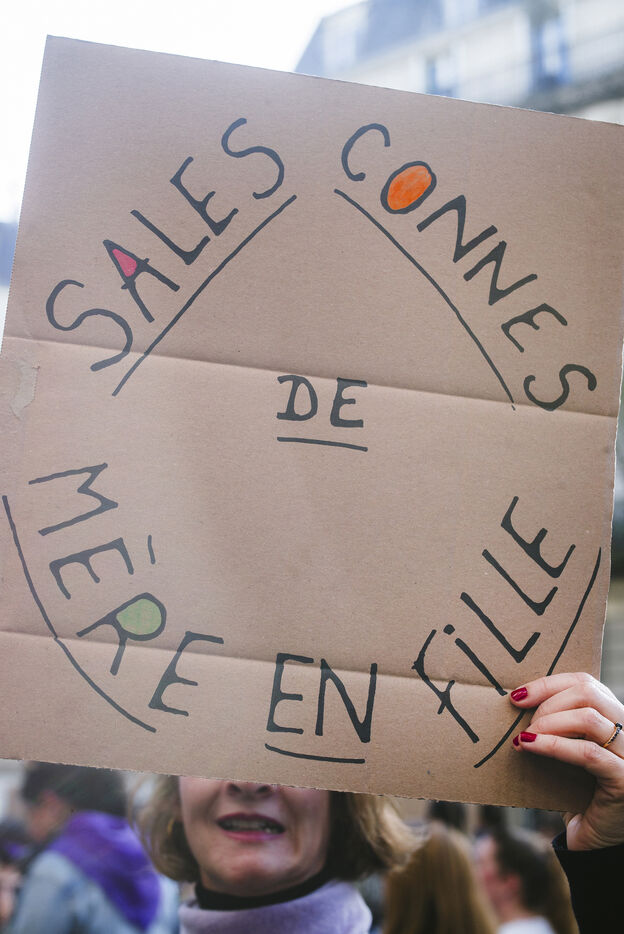 SALES CONNES
DE
MÈRE EN FiLLE